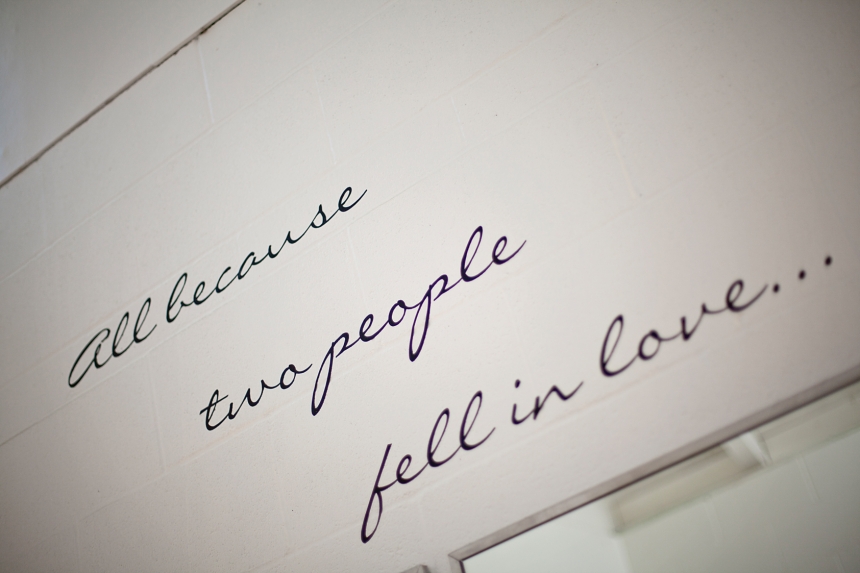 All because
two people
fell in love...